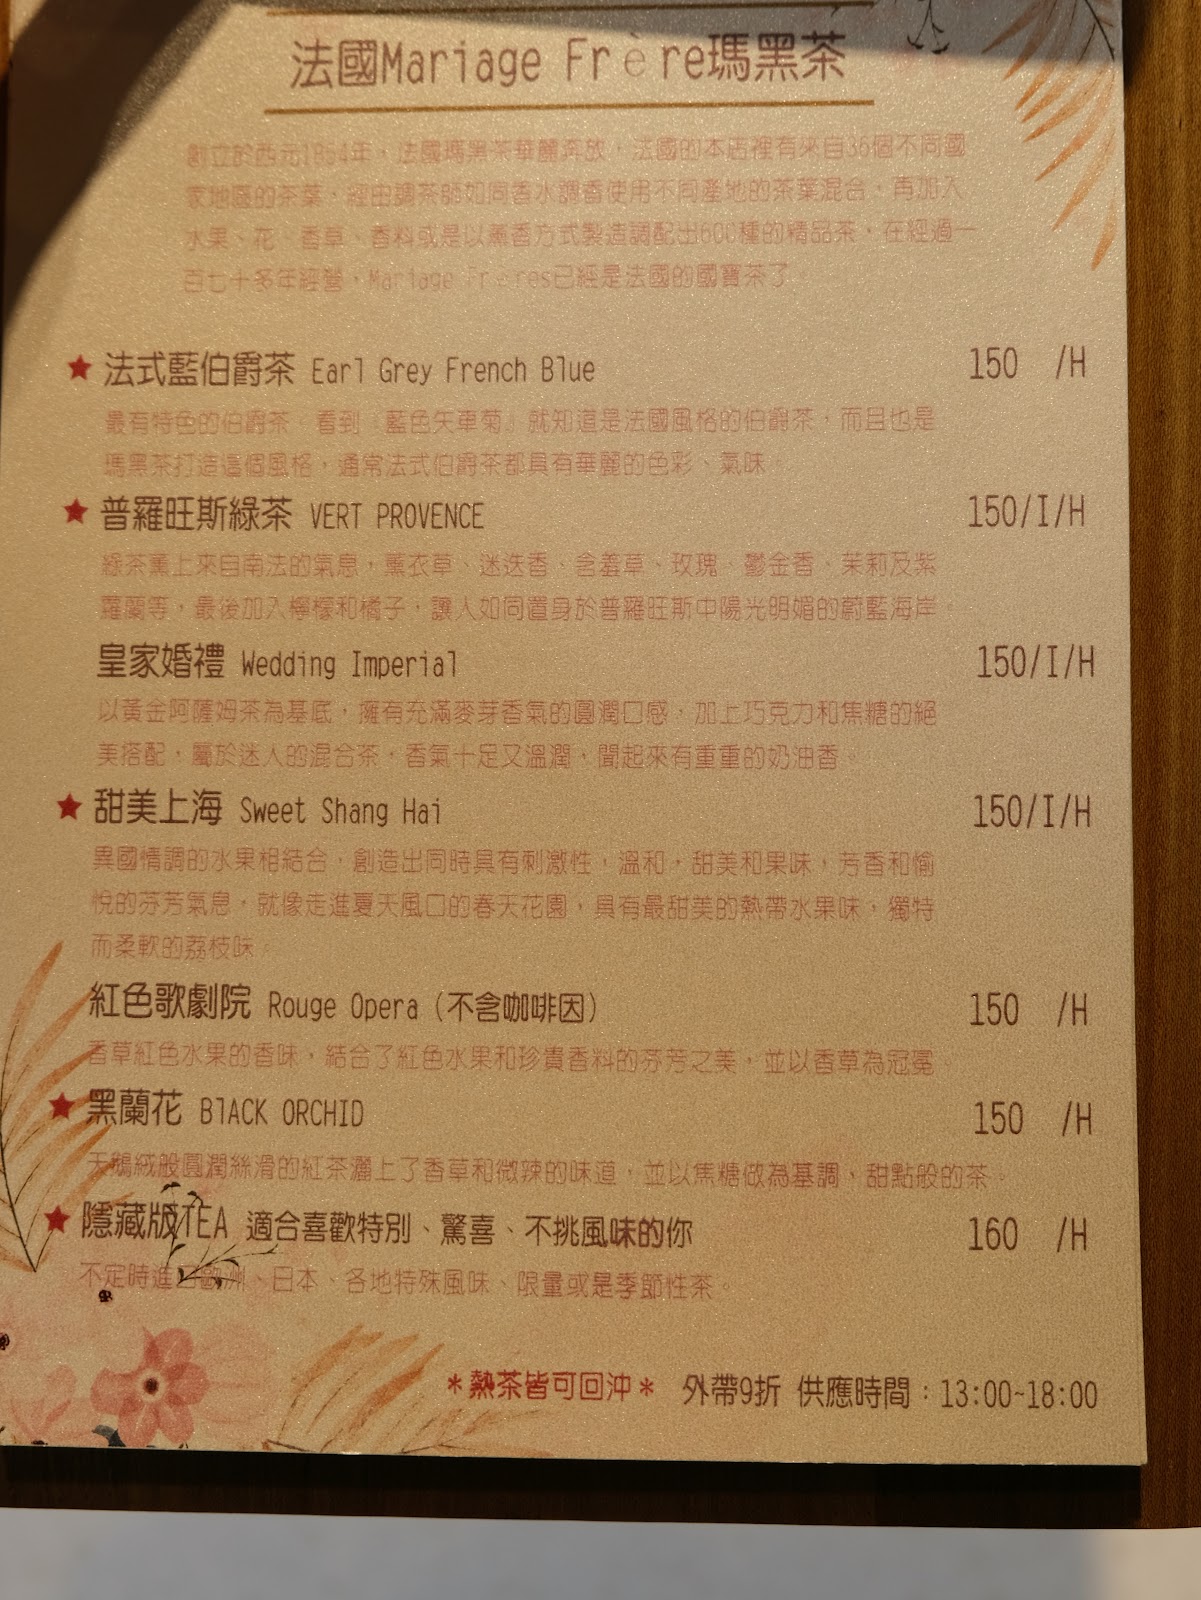 法國Mariage Frère瑪黑茶
創立於西元1854年，法國瑪黑茶華麗奔放，法國的本店裡有來自36個不同國
家地區的茶葉，經由調茶師如同香水調香使用不同產地的茶葉混合，再加入
水果、花、香草、香料或是以薰香方式製造調配出600種的精品茶，在經過一
百七十多年經營，Mariage Frères已經是法國的國寶茶了
★ 法式藍伯爵茶 Earl Grey French Blue 150 /H
最有特色的伯爵茶，看到『藍色矢車菊』就知道是法國風格的伯爵茶，而且也是
瑪黑茶打造這個風格，通常法式伯爵茶都具有華麗的色彩、氣味。
★ 普羅旺斯綠茶 VERT PROVENCE 150/I/H
綠茶薰上來自南法的氣息，薰衣草、迷迭香、含羞草、玫瑰、鬱金香、茉莉及紫
蘿蘭等，最後加入檸檬和橘子，讓人如同置身於普羅旺斯中陽光明媚的蔚藍海岸。
皇家婚禮 Wedding Imperial 150/I/H
以黃金阿薩姆茶為基底，擁有充滿麥芽香氣的圓潤口感，加上巧克力和焦糖的絕
美搭配，屬於迷人的混合茶，香氣十足又溫潤，聞起來有重重的奶油香。
★ 甜美上海 Sweet Shang Hai 150/I/H
異國情調的水果相結合，創造出同時具有刺激性，溫和，甜美和果味，芳香和愉
悅的芬芳氣息，就像走進夏天風口的春天花園，具有最甜美的熱帶水果味，獨特
而柔軟的荔枝味。
紅色歌劇院 Rouge Opera (不含咖啡因) 150 /H
香草紅色水果的香味，結合了紅色水果和珍貴香料的芬芳之美，並以香草為冠冕。
★ 黑蘭花 BlACK ORCHID 150 /H
天鵝絨般圓潤絲滑的紅茶灑上了香草和微辣的味道，並以焦糖做為基調，甜點般的茶。
★ 隱藏版TEA 適合喜歡特別、驚喜、不挑風味的你 160 /H
不定時進口歐洲、日本、各地特殊風味、限量或是季節性茶。
*熱茶皆可回沖* 外帶9折 供應時間：13:00~18:00